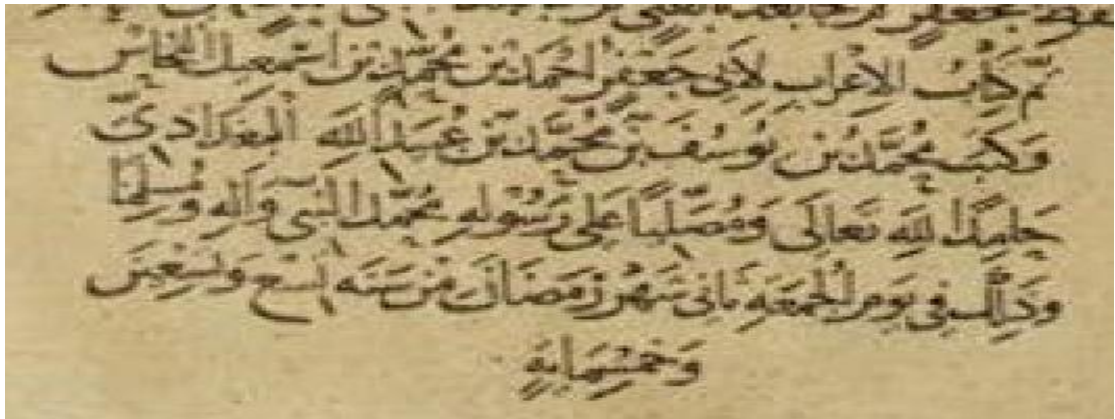 تم كتاب الاعراب لابي جعفر احمد بن محمد بن اسمعيل النحاس
وكتب محمد بن يوسف بن محمد بن عبيد الله البغدادي
حامدا لله تعالى ومصليا على رسوله محمد النبي وآله ومسلما
وذلك في يوم الجمعة ثاني شهر رمضان من سنة تسع وتسعين
وخمسمائة